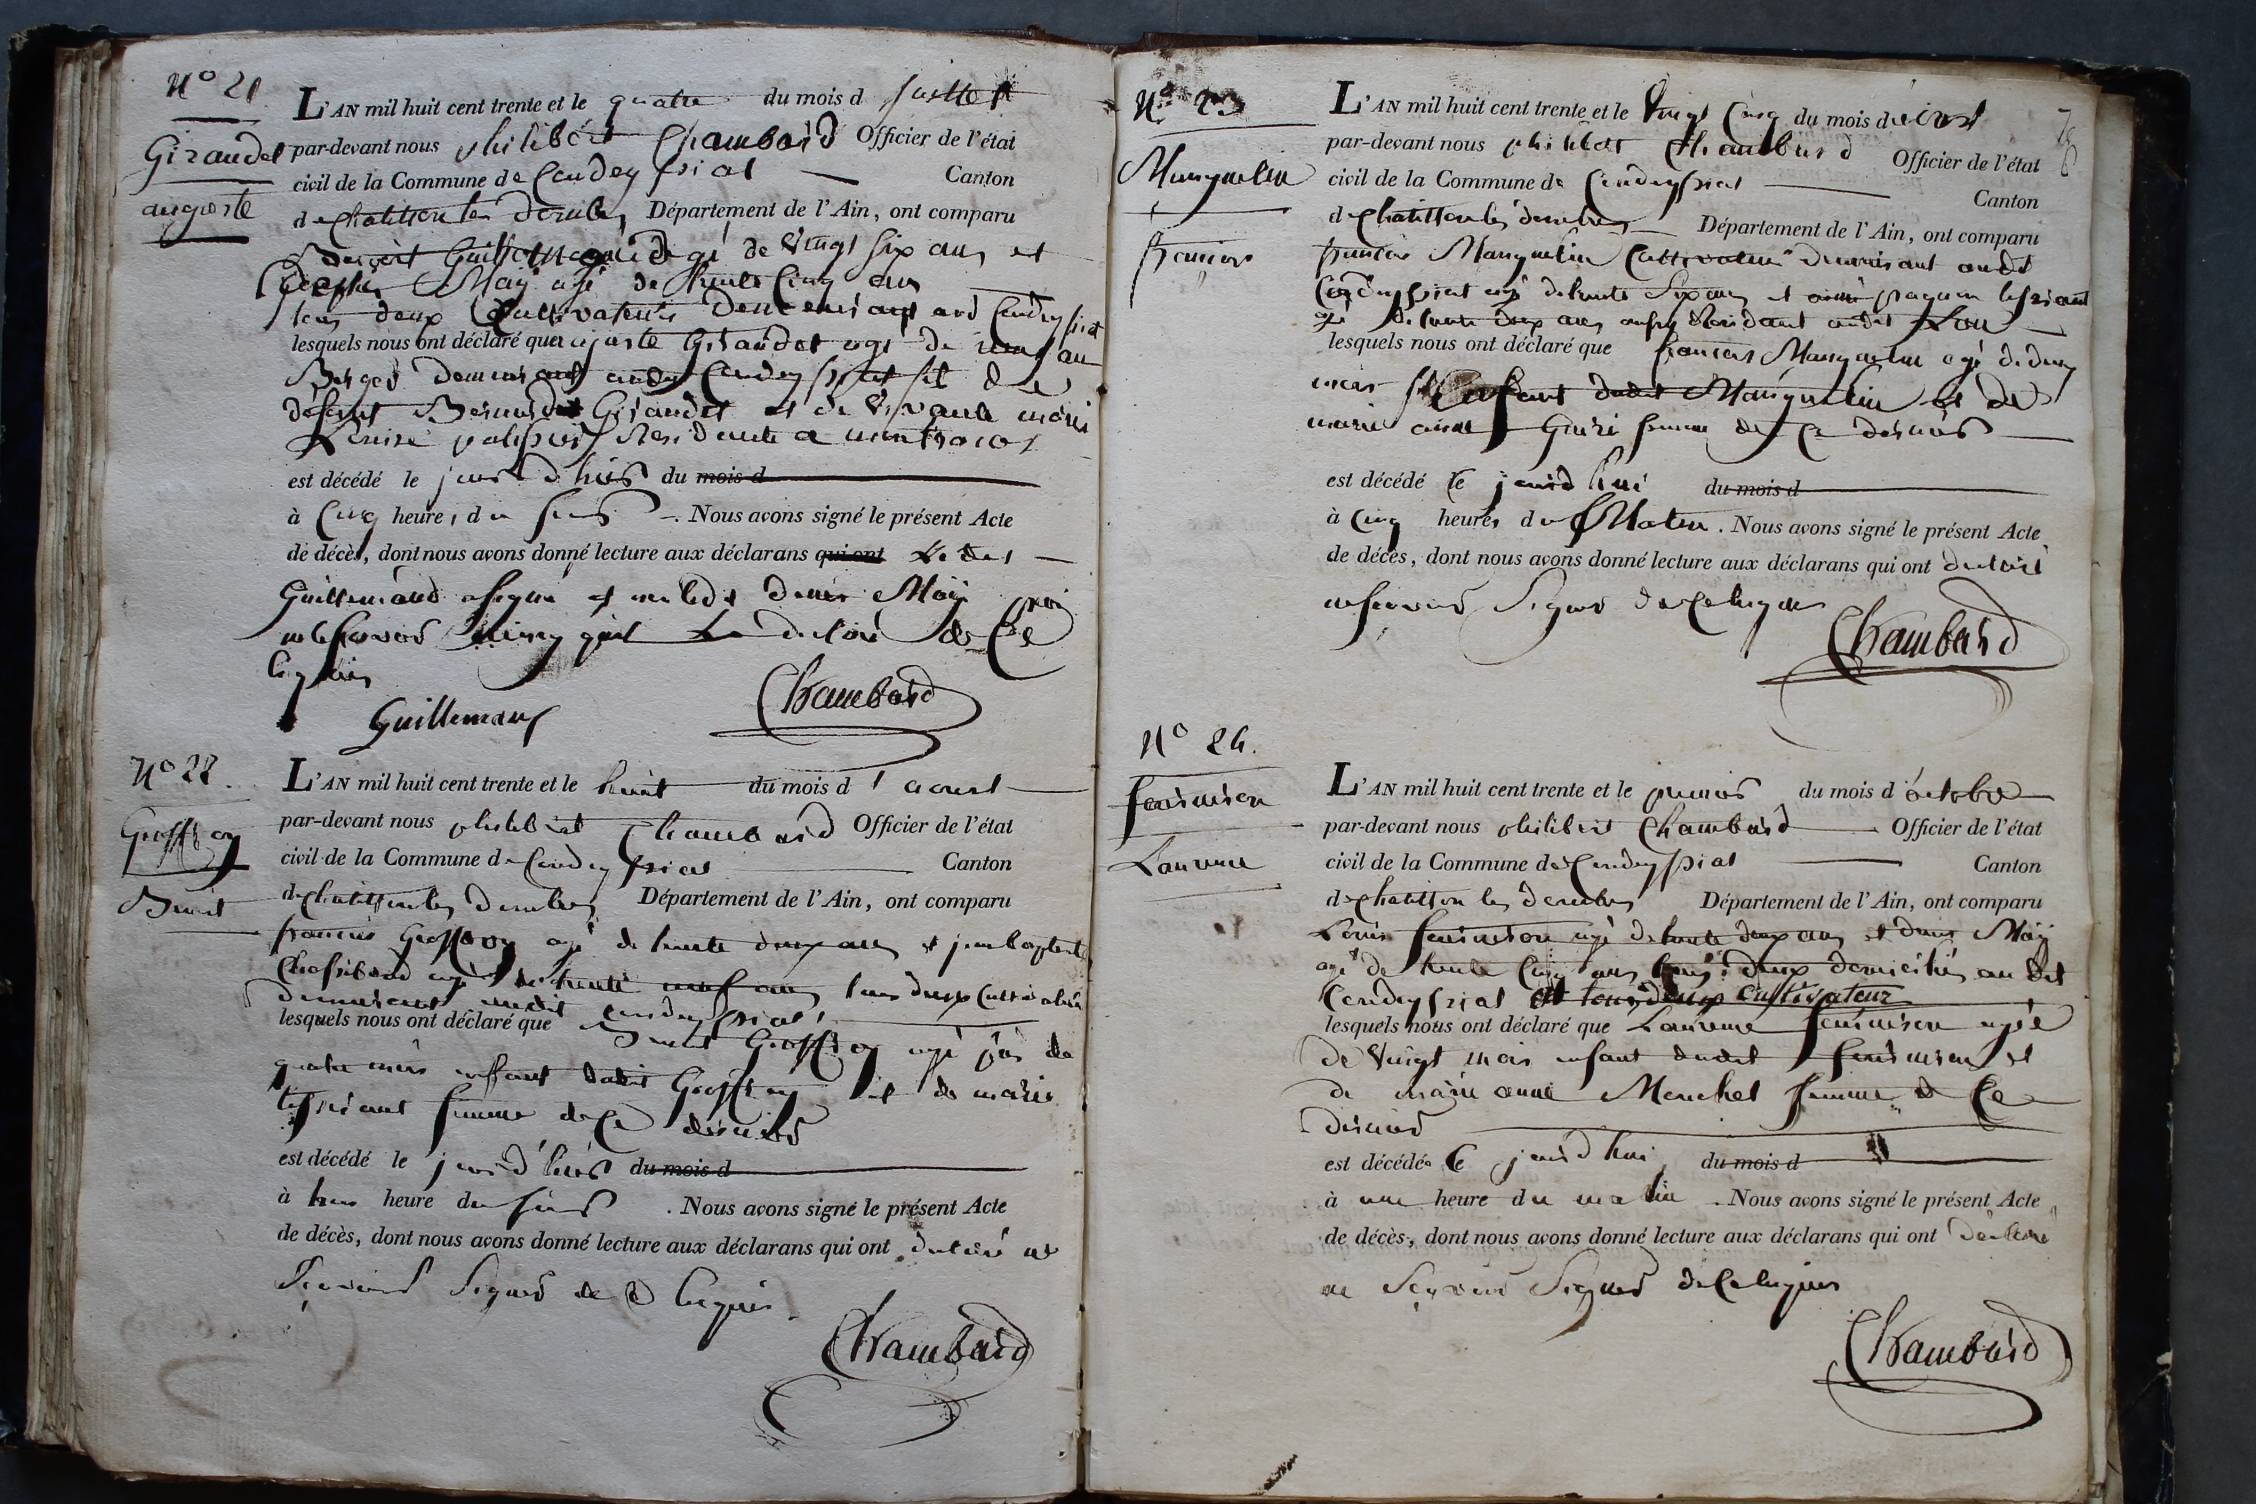 N° 21
Giraudet
auguste
L'AN mil huit cent trente et le quatre du mois d Juillet
par-devant nous philibert Chambard Officier de l'état
civil de la Commune de Condeyssiat Canton
de Chatillon les Dombes Département de l'Ain, ont comparu
Guillemaud agé de Vingt six ans et
May agé de trente Cinq ans
tous deux Cultivateurs Demeurant audi Condeyssiat
lesquels nous ont déclaré que auguste Giraudet agé de neuf an
Berger demeurant audit Condeyssiat fils de
défunt Bernard Giraudet et de Vivante marie
Résidente a montracol
est décédé le jourd'hui du mois d
à Cinq heure, du soir. Nous avons signé le présent Acte
de décès, dont nous avons donné lecture aux déclarans qui ont Ledit
Guillemaud a signé et non ledit denis May pour
ne savoir ainsy qu'il La declaré de Ce
Enquis
Guillemaud
Chambard
N° 22.
Geoffray
Benoit
L'AN mil huit cent trente et le huit du mois d'aoust
par-devant nous philibert Chambard Officier de l'état
civil de la Commune de Condeyssiat Canton
de Chatillon les Dombes Département de l'Ain, ont comparu
francois Geoffray agé de trente deux ans et jean baptiste
agé de trente neuf ans tous deux Cultivateurs
demeurant audit Condeyssiat
lesquels nous ont déclaré que Benoit Geoffray agé de
quatre mois enfant dudit Geoffray et de marie
tissiaut femme de Ce dernier
est décédé le jourd'hui du mois d
à trois heure du soir. Nous avons signé le présent Acte
de décès, dont nous avons donné lecture aux déclarans qui ont declaré ne
Scavoir Signer de Ce Enquis.
Chambard
78
N° 23
Manguelin
francois
L'AN mil huit cent trente et le Vingt Cinq du mois d'aoust
par-devant nous philibert Chambard Officier de l'état
civil de la Commune de Condeyssiat Canton
de Chatillon les dombes Département de l'Ain, ont comparu
francois Manguelin Cultivateur demeurant audit
Condeyssiat agé de trente Six ans et
agé de trente deux ans aussy Résidant audit Lieu
lesquels nous ont déclaré que francois Manguelin agé de deux
mois enfant dudit Manguelin et de
marie anne femme de Ce dernier
est décédé le jourd'hui du mois d
à Cinq heures du Matin. Nous avons signé le présent Acte
de décès, dont nous avons donné lecture aux déclarans qui ont declaré
ne scavoir Signer de Ce Enquis
Chambard
N° 24.
Laurence
L'AN mil huit cent trente et le premier du mois d'octobre
par-devant nous philibert Chambard Officier de l'état
civil de la Commune de Condeyssiat Canton
de Chatillon les dombes Département de l'Ain, ont comparu
Louis agé de trente deux ans et denis May
agé de trente Cinq ans tous deux domiciliés au dit
Condeyssiat et tous deux cultivateur
lesquels nous ont déclaré que Laurence agée
de Vingt mois enfant dudit et
de marie anne Monchet femme de Ce
dernier
est décédée le jourd'hui du mois d
à une heure du matin. Nous avons signé le présent Acte
de décès, dont nous avons donné lecture aux déclarans qui ont declaré
ne Scavoir Signer de Ce Enquis
Chambard